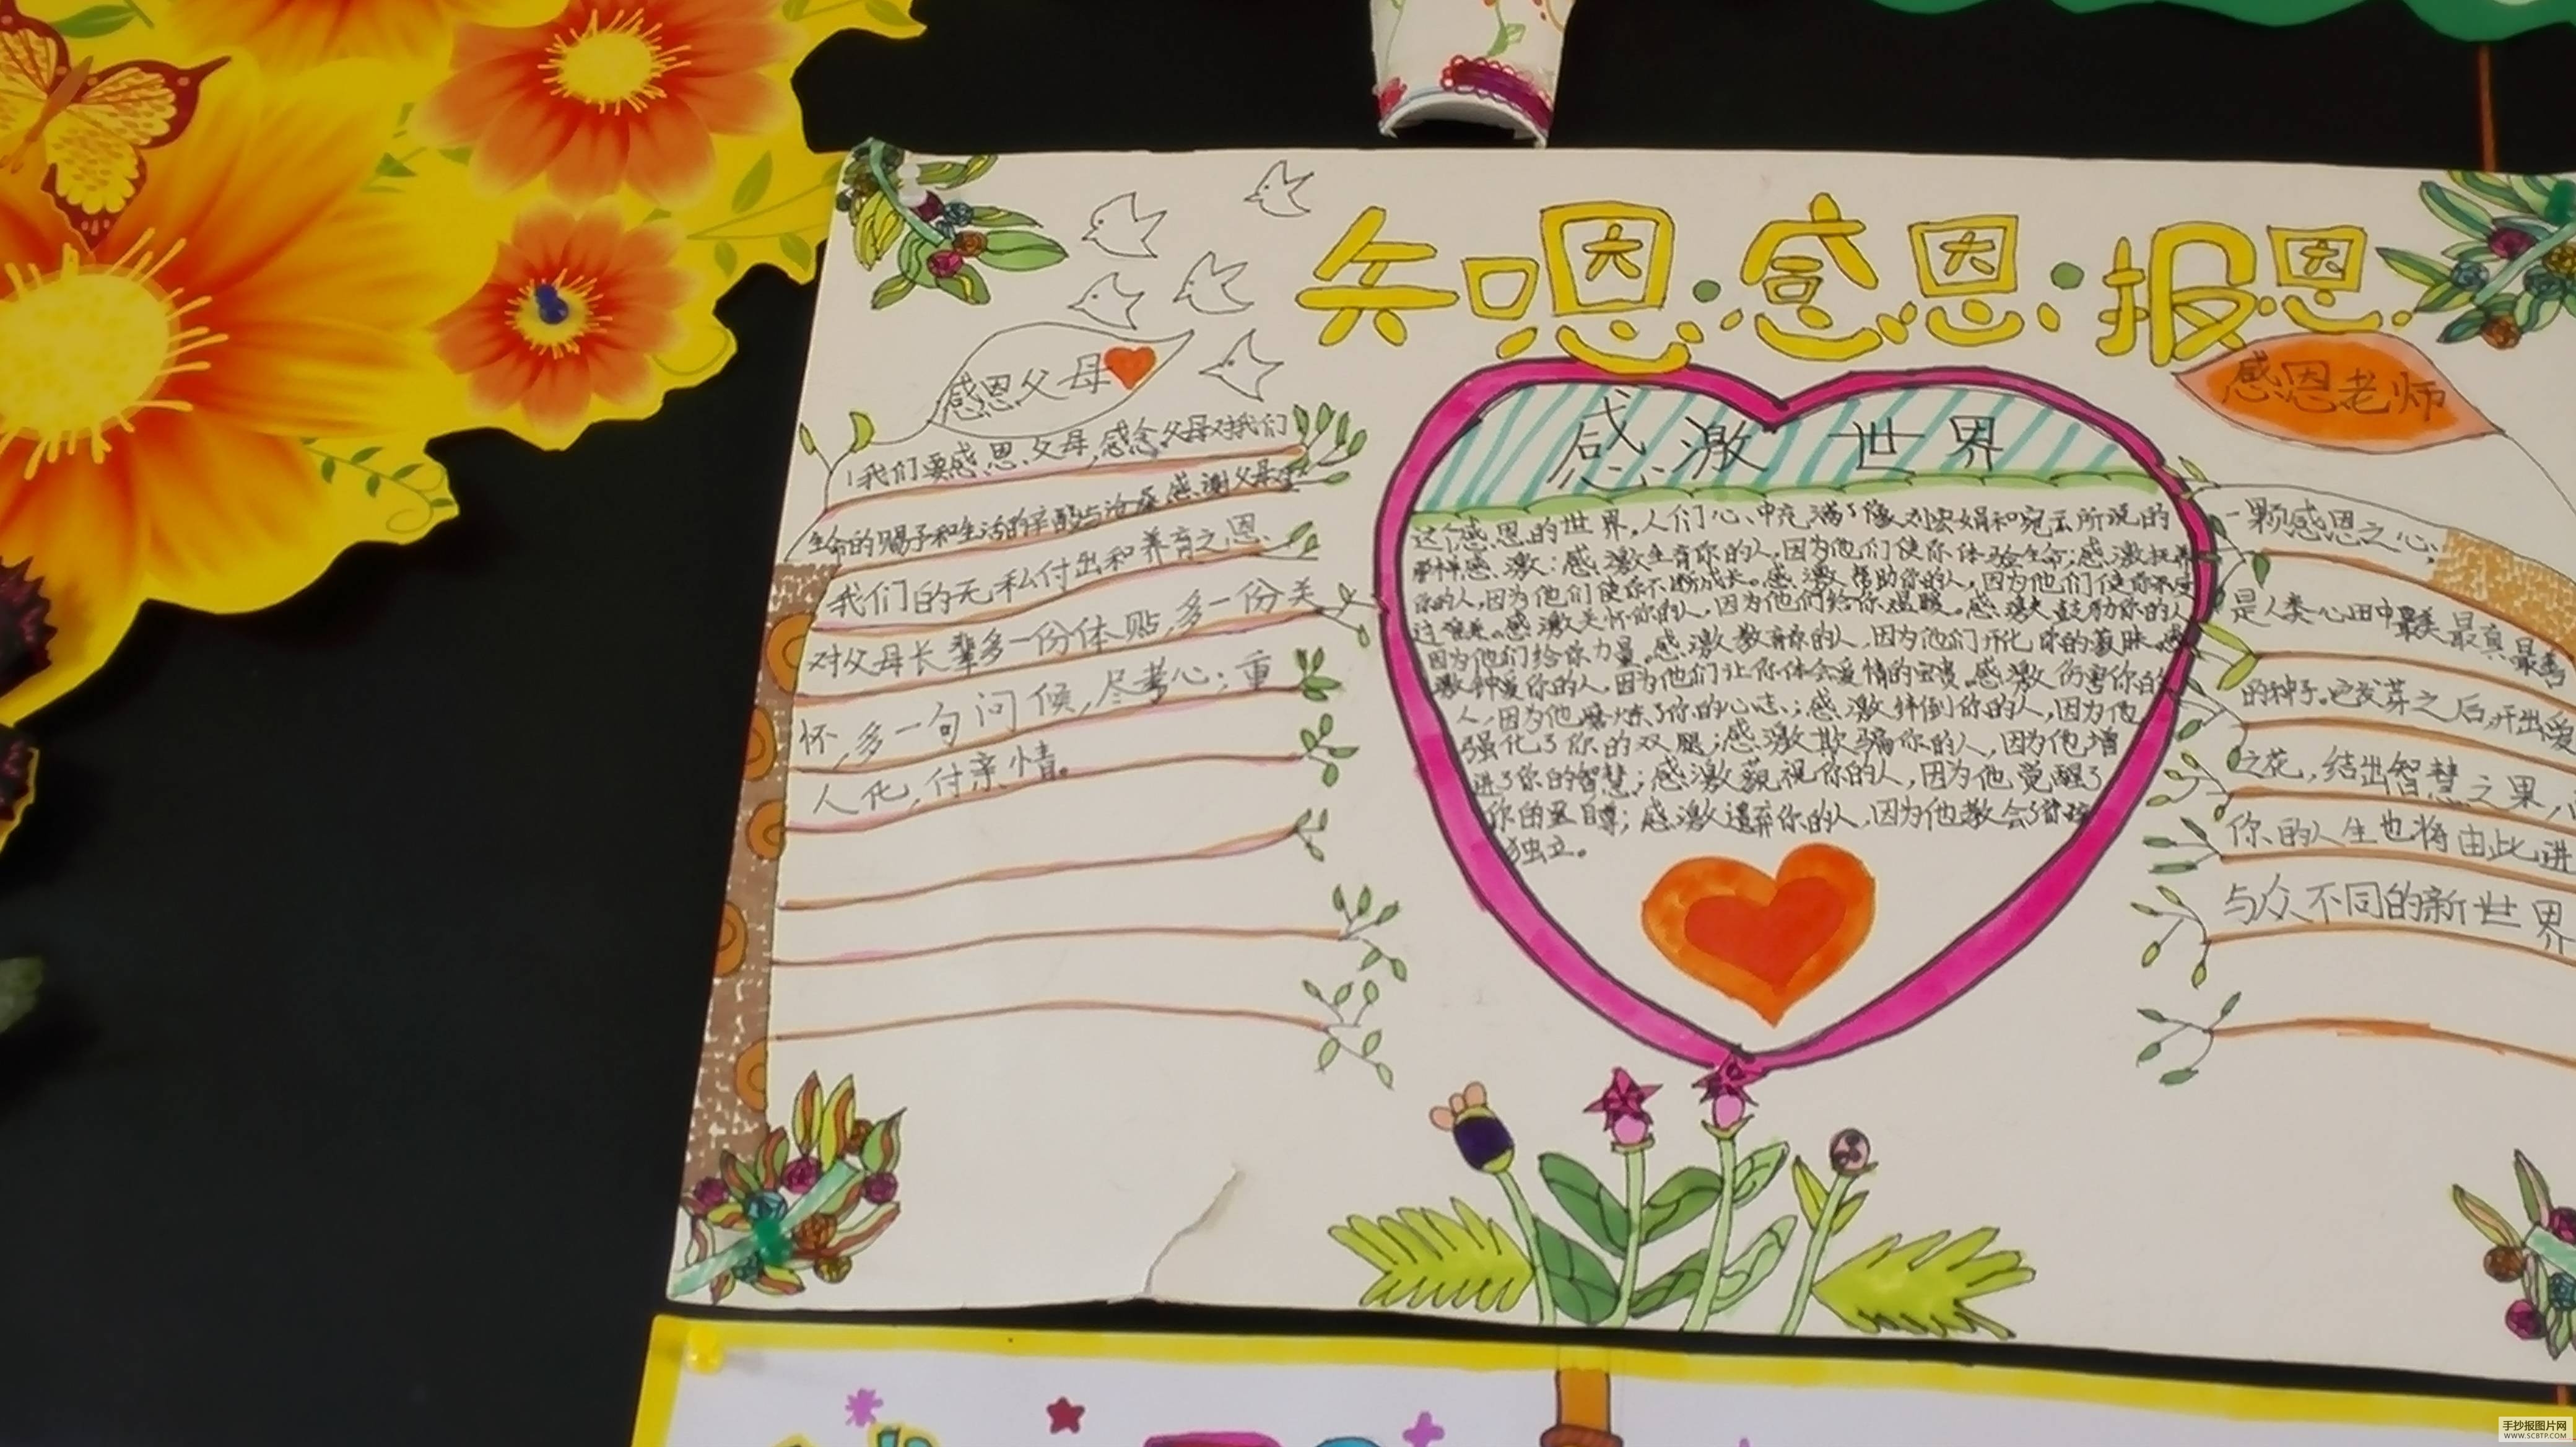 知恩·感恩·报恩
感恩父母
1我们要感恩父母,感念父母对我们
生命的赐予和生活的辛酸与沧桑感谢父母
我们的无私付出和养育之恩、
对父母长辈多一份体贴,多一份关
怀,多一句问候,尽孝心;重
人化,付亲情。
感激世界
这个感恩的世界,人们心中充满了像刘宏娟和宛云所说的
那样感激:感激生育你的人,因为他们使你体验生命;感激抚养
你的人,因为他们使你不断成长。感激帮助你的人,因为他们使你
感激关怀你的人,因为他们给你温暖。感激鼓励你的人
因为他们给你力量。感激教育你的人,因为他们开化你的蒙昧。感
激钟爱你的人,因为他们让你体会爱情的宝贵。感激伤害你的
人,因为他磨炼了你的心志;感激绊倒你的人,因为他
强化了你的双腿;感激欺骗你的人,因为他增
进了你的智慧;感激藐视你的人,因为他觉醒了
你的自尊;感激遗弃你的人,因为他教会了你
独立。
感恩老师
一颗感恩之心,
是人类心田中最美最真最善
的种子。它发芽之后,开出爱
之花,结出智慧之果,
你的人生也将由此进
与众不同的新世界
手抄报图片网
WWW.SCBTP.COM